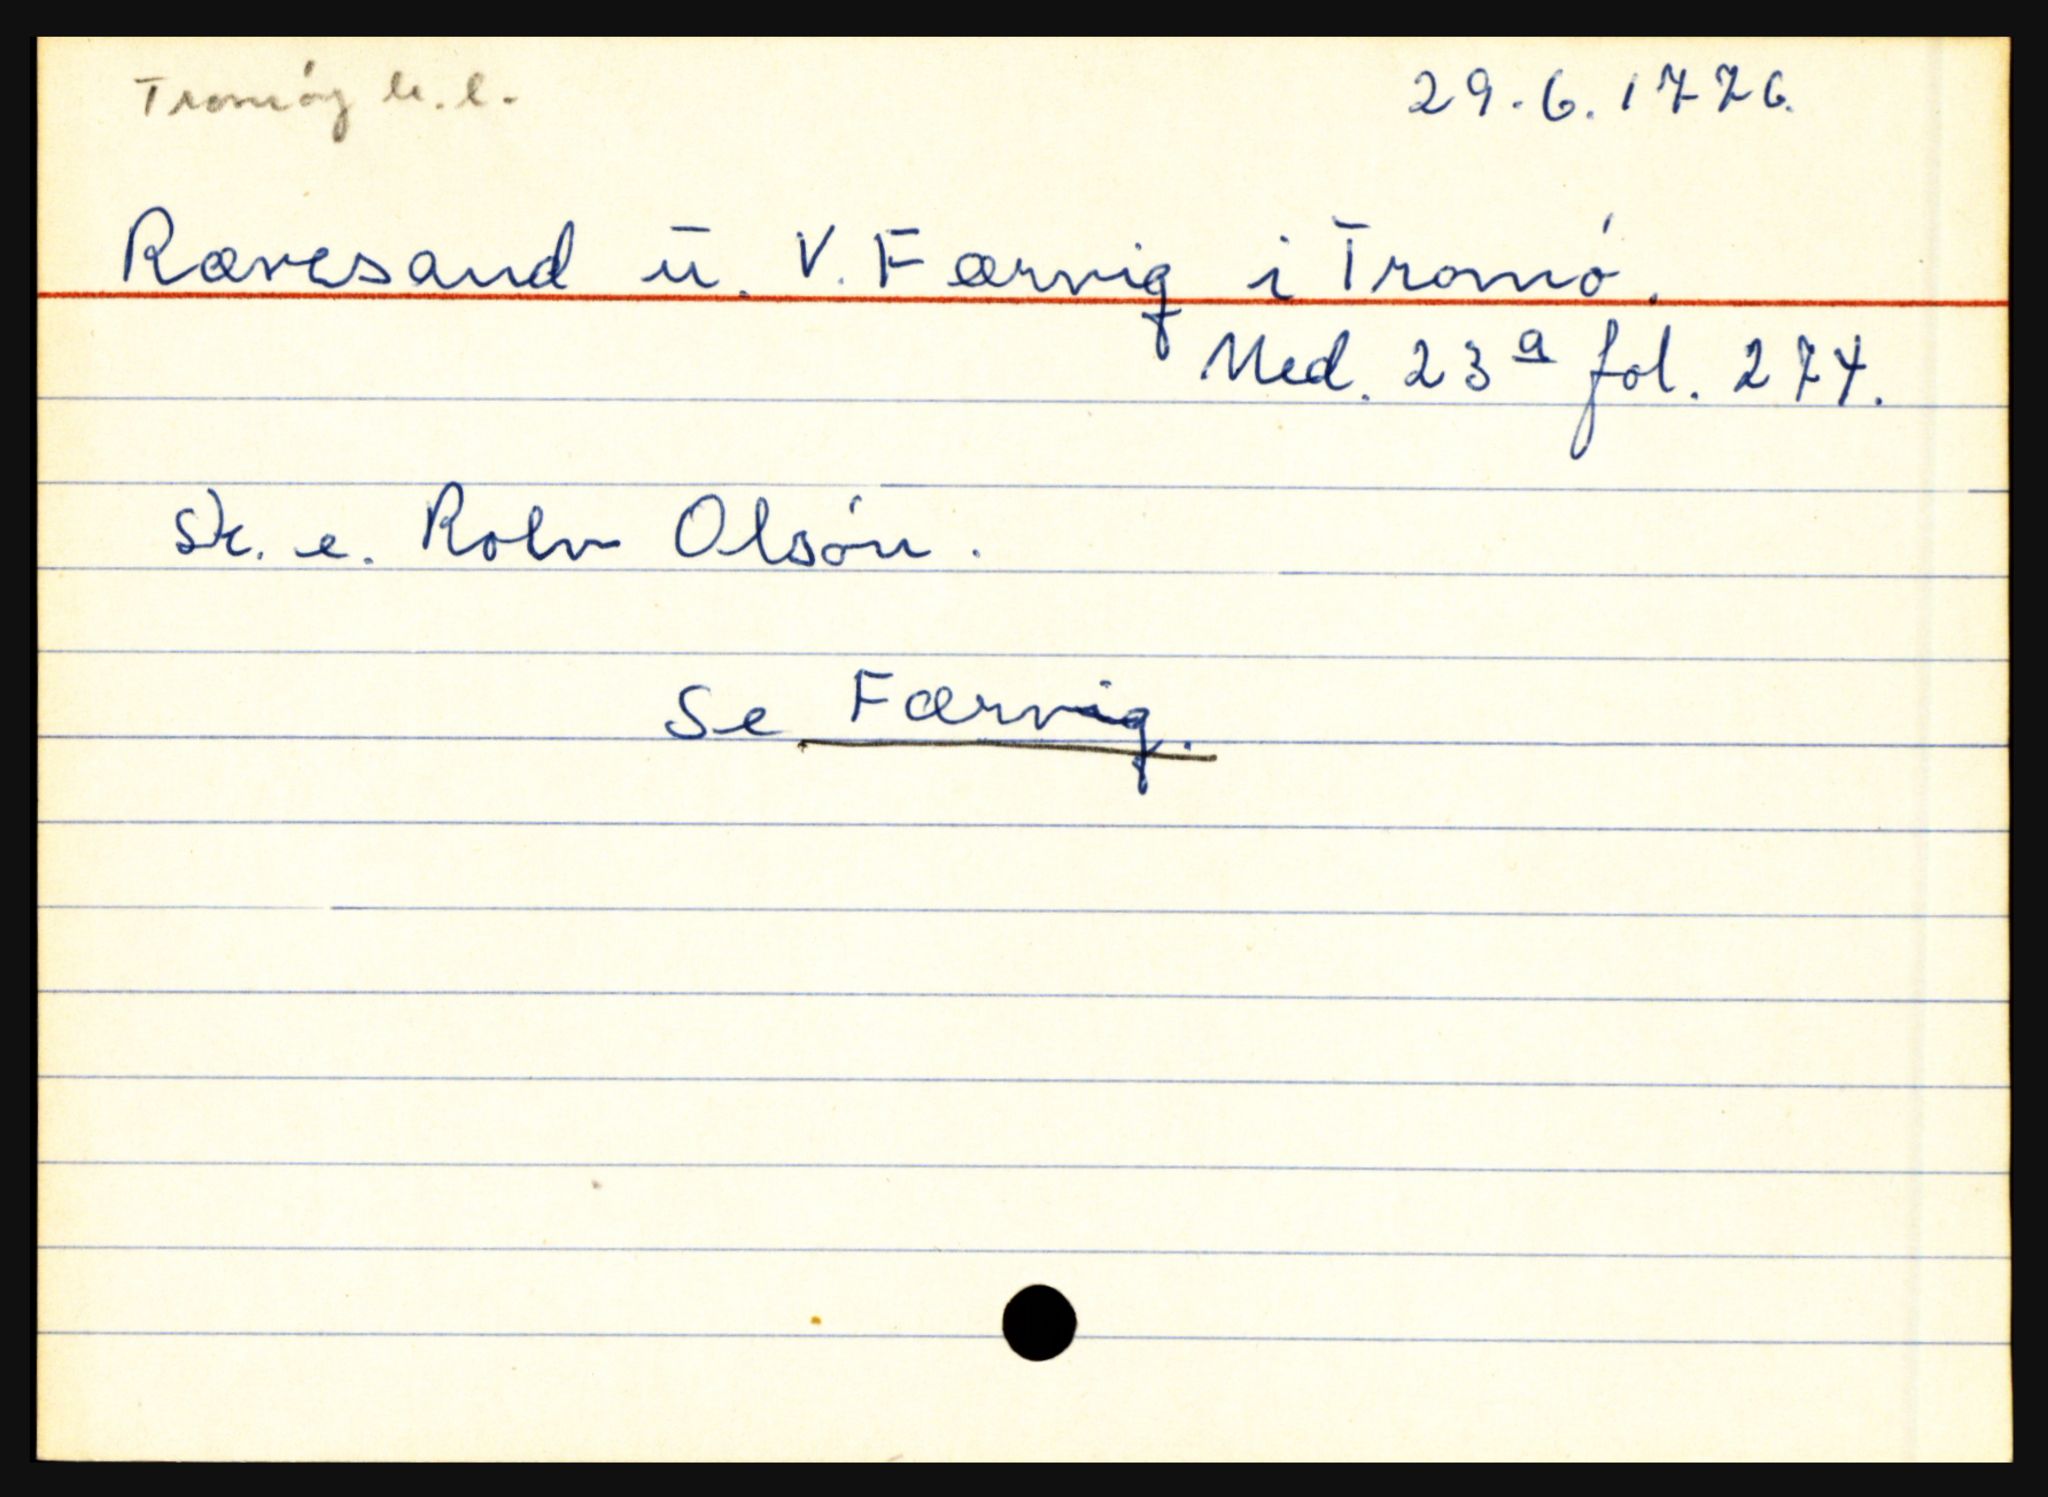 Tromøy h.l. 29.6.1776.
Rævesand u. V. Færvig i Tromø.
Ned. 23a fol. 274.
Sk. e. Rolv Olsøn.
Se Færvig.